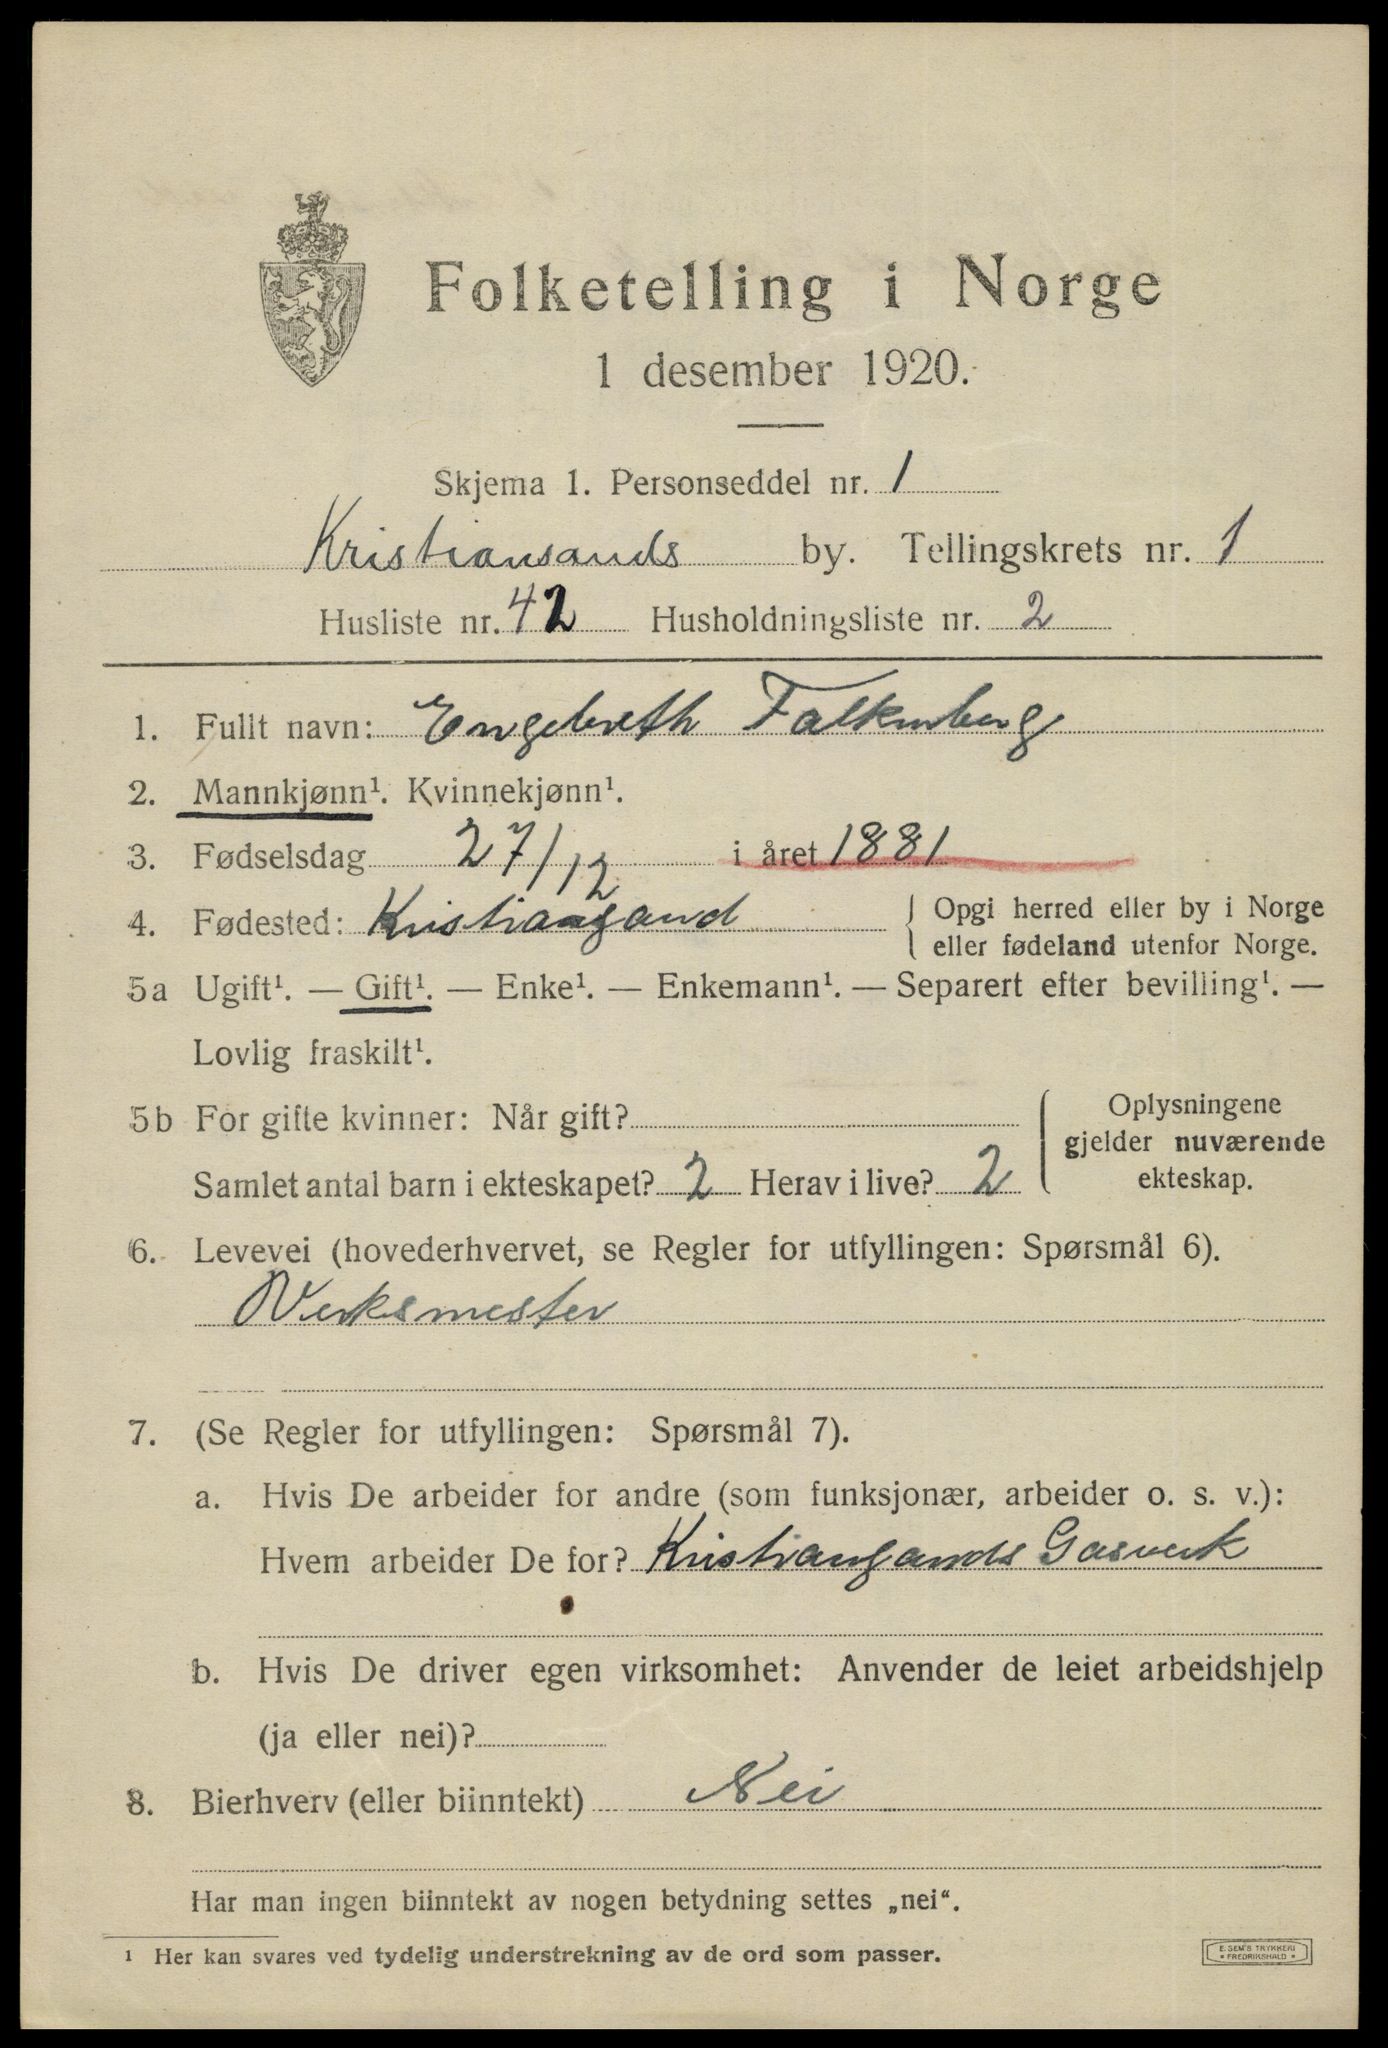 Folketelling i Norge
1 desember 1920.
Skjema 1. Personseddel nr. 1
Kristiansands by. Tellingskrets nr. 1
Husliste nr. 42 Husholdningsliste nr. 2
1. Fullt navn: Engebreth Falkenberg
2. Mannkjønn¹. Kvinnekjønn¹.
3. Fødselsdag 27/12 i året 1881
4. Fødested: Kristiansand { Opgi herred eller by i Norge
eller fødeland utenfor Norge.
5a Ugift¹. — Gift¹. — Enke¹. — Enkemann¹. — Separert efter bevilling¹. —
Lovlig fraskilt¹.
5b For gifte kvinner: Når gift? { Oplysningene
gjelder nuværende
ekteskap.
Samlet antal barn i ekteskapet? 2 Herav i live? 2
6. Levevei (hovederhvervet, se Regler for utfyllingen: Spørsmål 6).
Verksmester
7. (Se Regler for utfyllingen: Spørsmål 7).
a. Hvis De arbeider for andre (som funksjonær, arbeider o. s. v.):
Hvem arbeider De for? Kristiansands Gasverk
b. Hvis De driver egen virksomhet: Anvender de leiet arbeidshjelp
(ja eller nei)?
8. Bierhverv (eller biinntekt) Nei
Har man ingen biinntekt av nogen betydning settes „nei“.
¹ Her kan svares ved tydelig understrekning av de ord som passer.
E. SEM'S TRYKKERI
* FREDRIKSHALD *